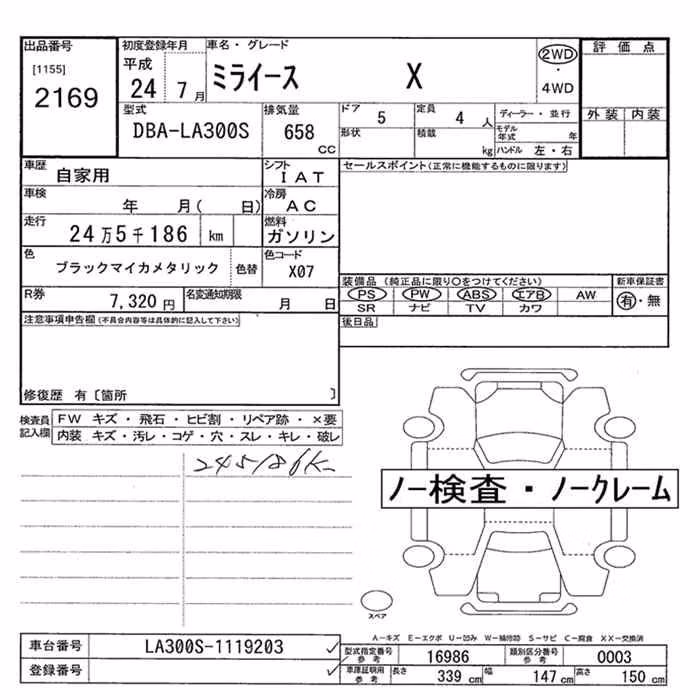 出品番号
[1155]
2169
初度登録年月
平成
24 7月
車名・グレード
ミライース X
2WD
・
4WD
評価点
外装 内装
型式
DBA-LA300S
排気量
658
CC
ドア
5
定員
4人
形状
積載
kg
ディーラー・並行
モデル年式 年
ハンドル 左・右
車歴
自家用
シフト
IAT
車検
年 月( 日)
冷房
AC
走行
24万5千186 km
燃料
ガソリン
色
ブラックマイカメタリック
色替
色コード
X07
R券
7,320円
名変通知期限
月 日
セールスポイント(正常に機能するものに限ります)
装備品 (純正品に限り○をつけてください)
PS PW ABS エアB AW
SR ナビ TV カワ
新車保証書
有・無
後日品
注意事項申告欄(不具合内容等は具体的に記入して下さい)
修復歴 有〔箇所 〕
検査員記入欄
FW キズ・飛石・ヒビ割・リペア跡・×要
内装 キズ・汚レ・コゲ・穴・スレ・キレ・破レ
245186K
ノー検査・ノークレーム
スペア
A−キズ E−エクボ U−凹み W−補修跡 S−サビ C−腐食 XX−交換済
車台番号
LA300S-1119203
登録番号
型式指定番号 参考
16986
類別区分番号 参考
0003
車庫証明用 参考
長さ 339 cm 幅 147 cm 高さ 150 cm